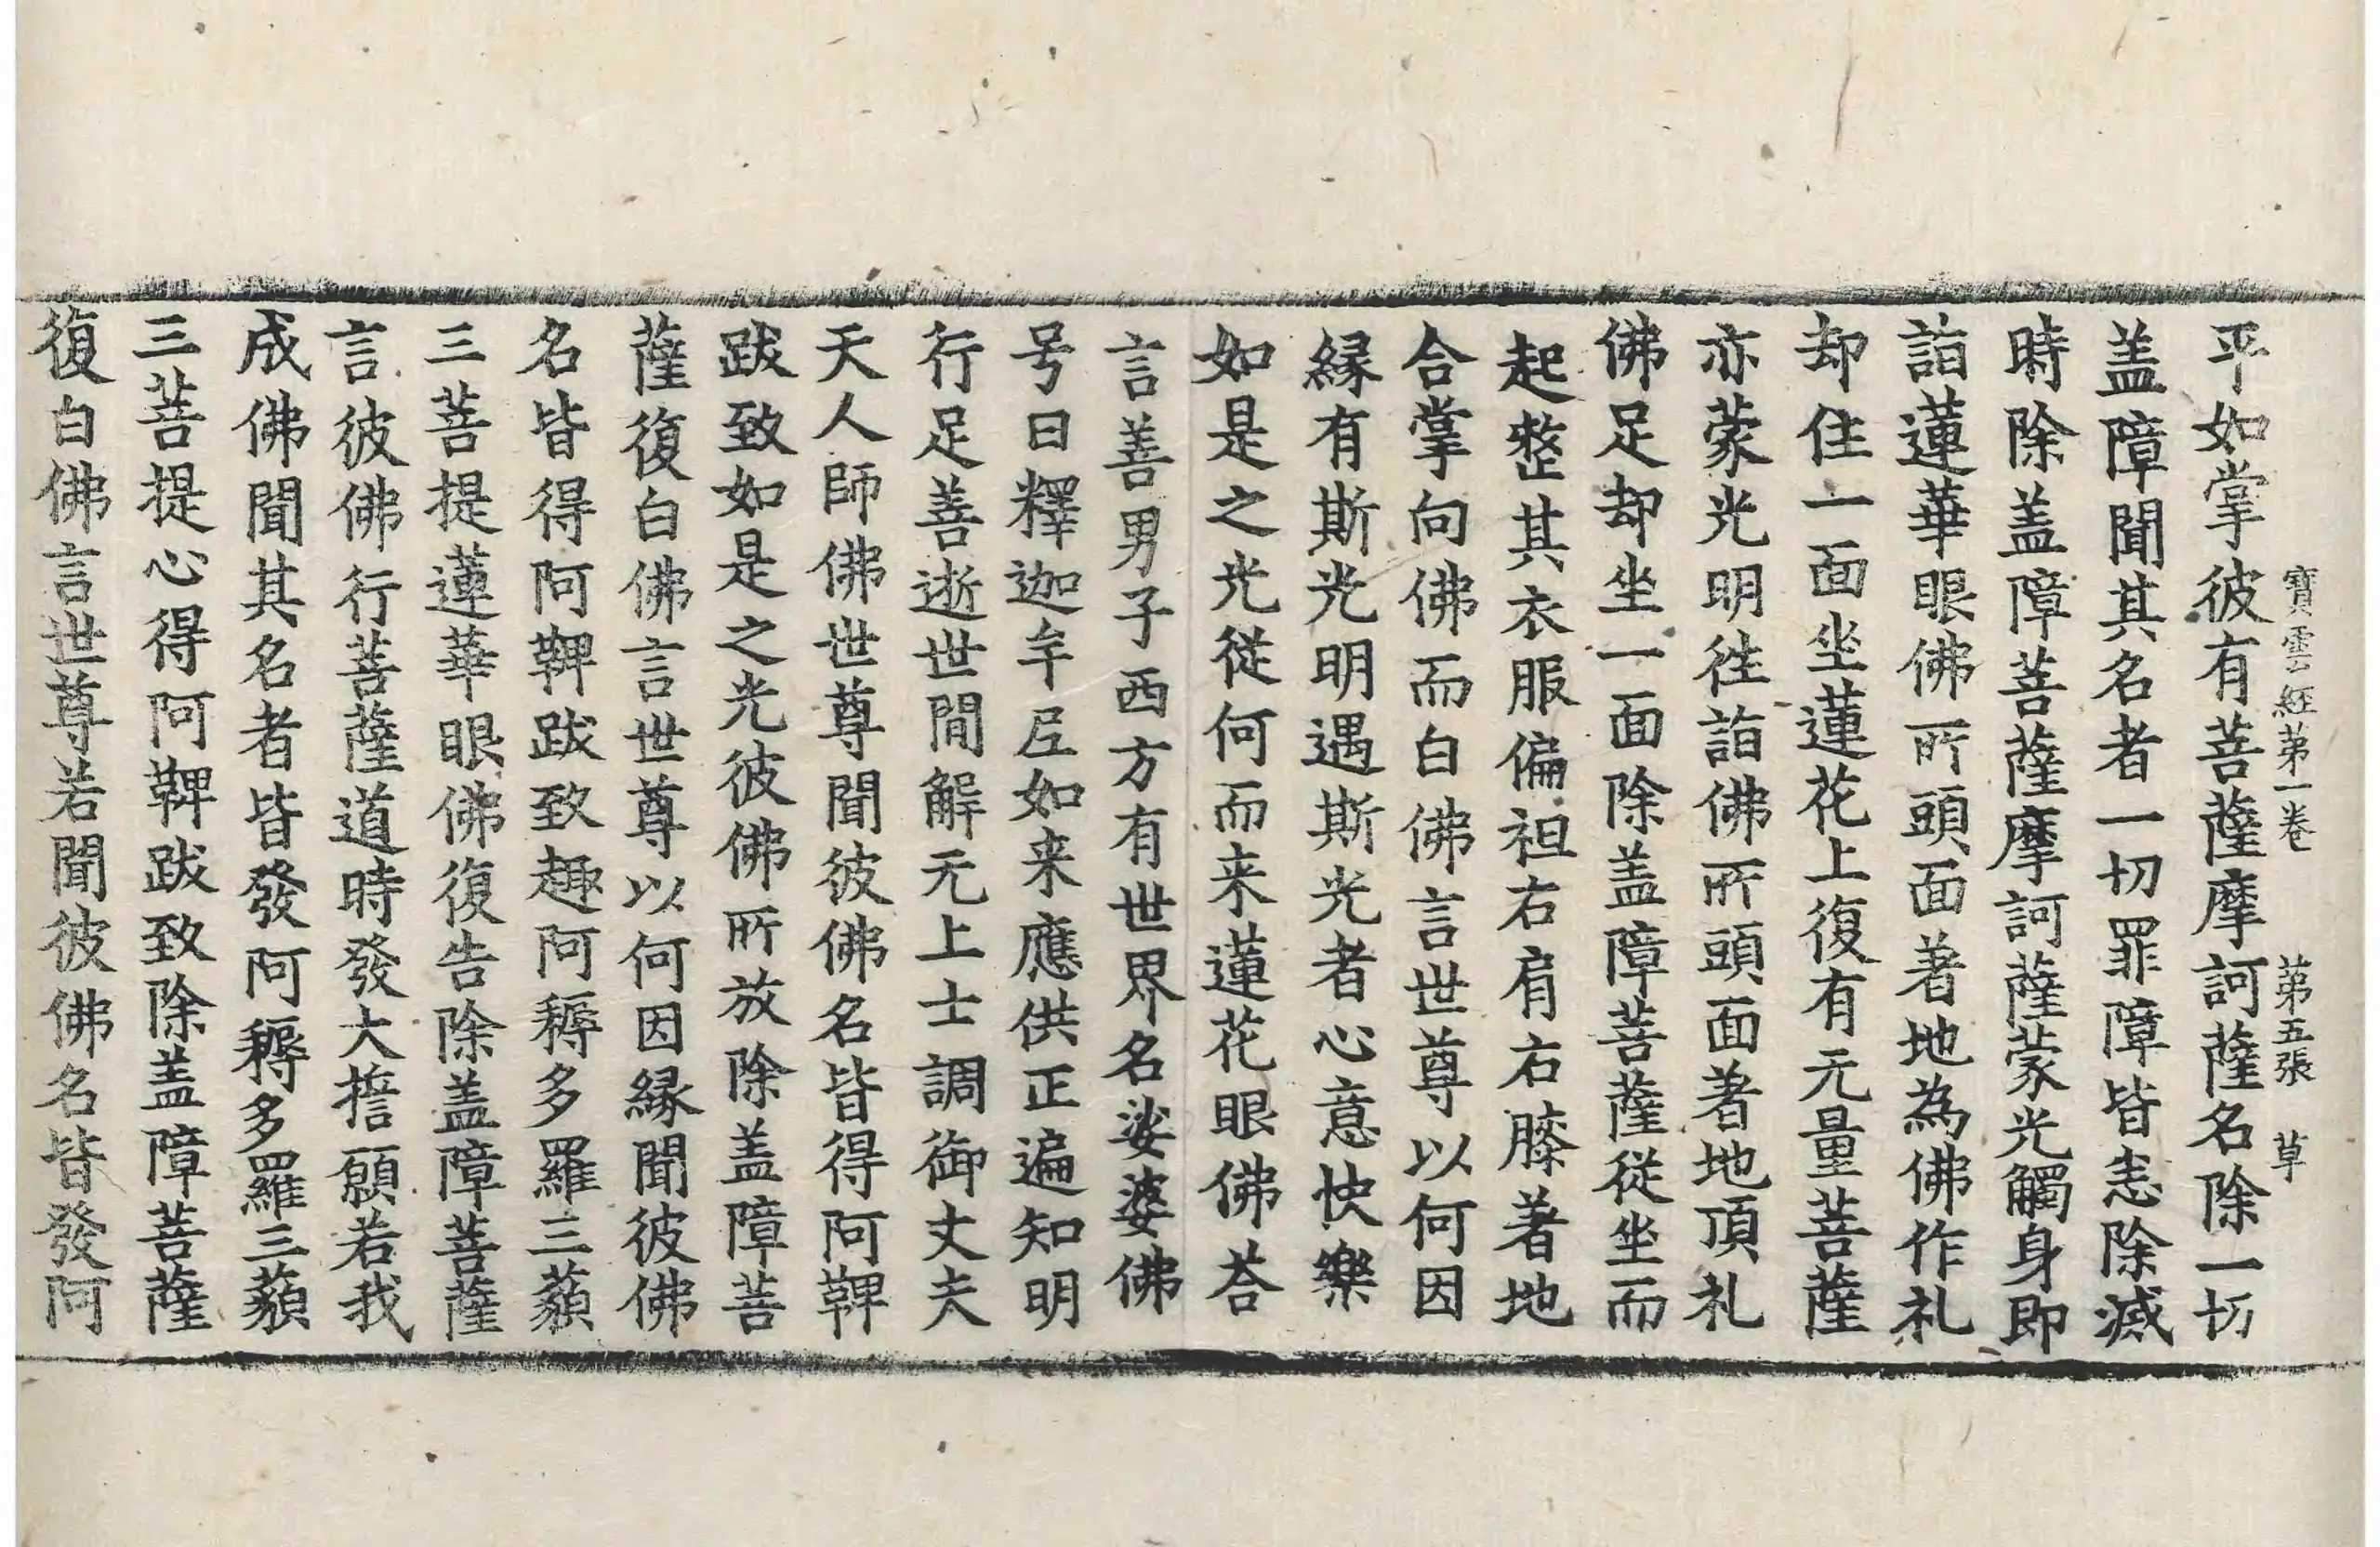 寶雲經第一卷　第五張　草
平如掌彼有菩薩摩訶薩名除一切
盖障聞其名者一切罪障皆悉除滅
時除盖障菩薩摩訶薩蒙光觸身即
詣蓮華眼佛所頭面著地為佛作礼
却住一面坐蓮花上復有无量菩薩
亦蒙光明往詣佛所頭面著地頂礼
佛足却坐一面除盖障菩薩從坐而
起整其衣服偏袒右肩右膝著地
合掌向佛而白佛言世尊以何因
緣有斯光明遇斯光者心意快樂
如是之光從何而来蓮花眼佛荅
言善男子西方有世界名娑婆佛
号曰釋迦牟尼如来應供正遍知明
行足善逝世間解无上士調御丈夫
天人師佛世尊聞彼佛名皆得阿鞞
跋致如是之光彼佛所放除盖障菩
薩復白佛言世尊以何因緣聞彼佛
名皆得阿鞞跋致趣阿耨多羅三藐
三菩提蓮華眼佛復告除盖障菩薩
言彼佛行菩薩道時發大誓願若我
成佛聞其名者皆發阿耨多羅三藐
三菩提心得阿鞞跋致除盖障菩薩
復白佛言世尊若聞彼佛名皆發阿